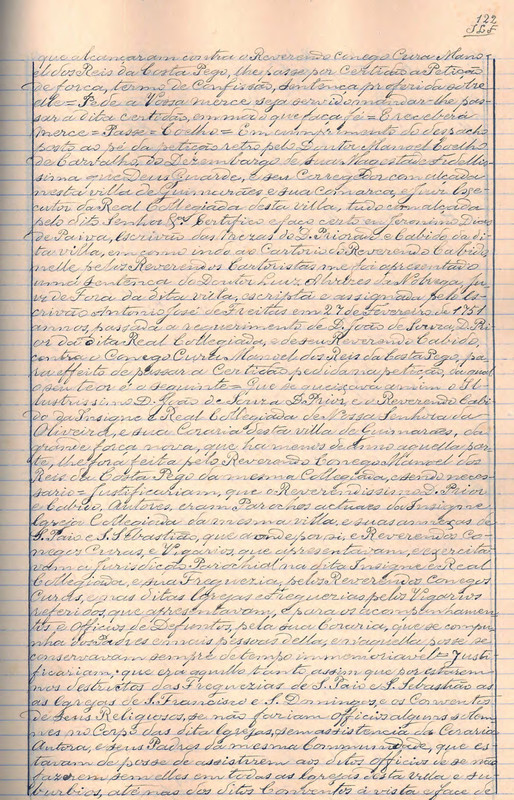 122
que alcançaram contra o Reverendo Conego Cura Mano-
el dos Reis da Costa Pego, lhe passe por Certidão a Petição
de força, termo de Confissão, sentença proferida sobre
elle = Pede a Vossa merce seja servido mandar-lhe pas-
sar a dita certidão, em modo que faça fé = E receberá
merce = Passe = Coelho = Em cumprimento do despacho
posto ao pé da petição retro pelo Doutor Manoel Coelho
de Carvalho, do Dezembargo de Sua Magestade Fidellis-
sima que Deus Guarde, e seu Corregedor com alçada
nesta villa de Guimarães e sua Comarca, e Juiz Exe-
cutor da Real Collegiada desta villa, tudo com alçada
pelo dito Senhor &ª Certifico e faço certo eu Jeronimo Dias
de Paiva, Escrivão das Prezas do D. Priorado e Cabido da di-
ta villa, em como indo ao Cartorio do Reverendo Cabido,
nelle pelos Reverendos Cartoristas me foi apresentado
uma Sentença do Doutor Luiz Alvares da Nobrega, Jui-
z de Fora da dita villa, escripta e assignada pelo Es-
crivão Antonio José de Freitas em 27 de Fevereiro de 1751
annos, passada a requerimento de D. João de Souza, D. Pri-
or da dita Real Collegiada, e de seu Reverendo Cabido,
contra o Conego Cura Manoel dos Reis da Costa Pego, pa-
ra effeito de passar a Certidão pedida na petição, da qual
o seu teor é o seguinte = Que se queixava a mim o Il-
lustrissimo D. João de Souza D. Prior e o Reverendo Cabi-
do da Insigne e Real Collegiada de Nossa Senhora da
Oliveira, e sua Coraria desta villa de Guimarães, da
grande força nova, que ha menos de anno aquella par-
te, lhe fora feita pelo Reverendo Conego Manoel dos
Reis da Costa Pego da mesma Collegiada, e sendo neces-
sario = Justificariam, que o Reverendissimo D. Prior
e Cabido, Autores, eram Parochos actuaes da Insigne
Igreja Collegiada da mesma villa, e suas annexas de
S. Paio e S. Sebastião, que a onde por si, e Reverendos Co-
negos Curas, e Vigarios, que apresentavam, e exercita-
vam a Jurisdicção Parochial na dita Insigne e Real
Collegiada, e sua Freguezia, pelos Reverendos Conegos
Curas, e nas ditas Igrejas e Freguezias pelos Vigarios
referidos, que apresentavam, e para os acompanhamen-
tos, e Officios de Defuntos, pela sua Coraria, que se compu-
nha dos Padres e mais pissoas della, e n'aquella posse se
conservavam sempre de tempo immemoriavel = Justi-
ficariam, que era aquillo tanto, assim que por estarem
nos destrictos das Freguezias de S. Paio e S. Sebastião as
as Igrejas de S. Francisco e S. Domingos, e os Conventos
de seus Religiosos, se não fariam officios alguns solem-
nes no Corpo das ditas Igrejas, sem assistencia da Coraria
Autora, e seus Padres da mesma Communidade, que es-
tavam de posse de assistirem aos ditos officios e se não
fazerem sem elles em todas as Igrejas desta villa e su-
burbios, até mas dos ditos Conventos á vista e face de